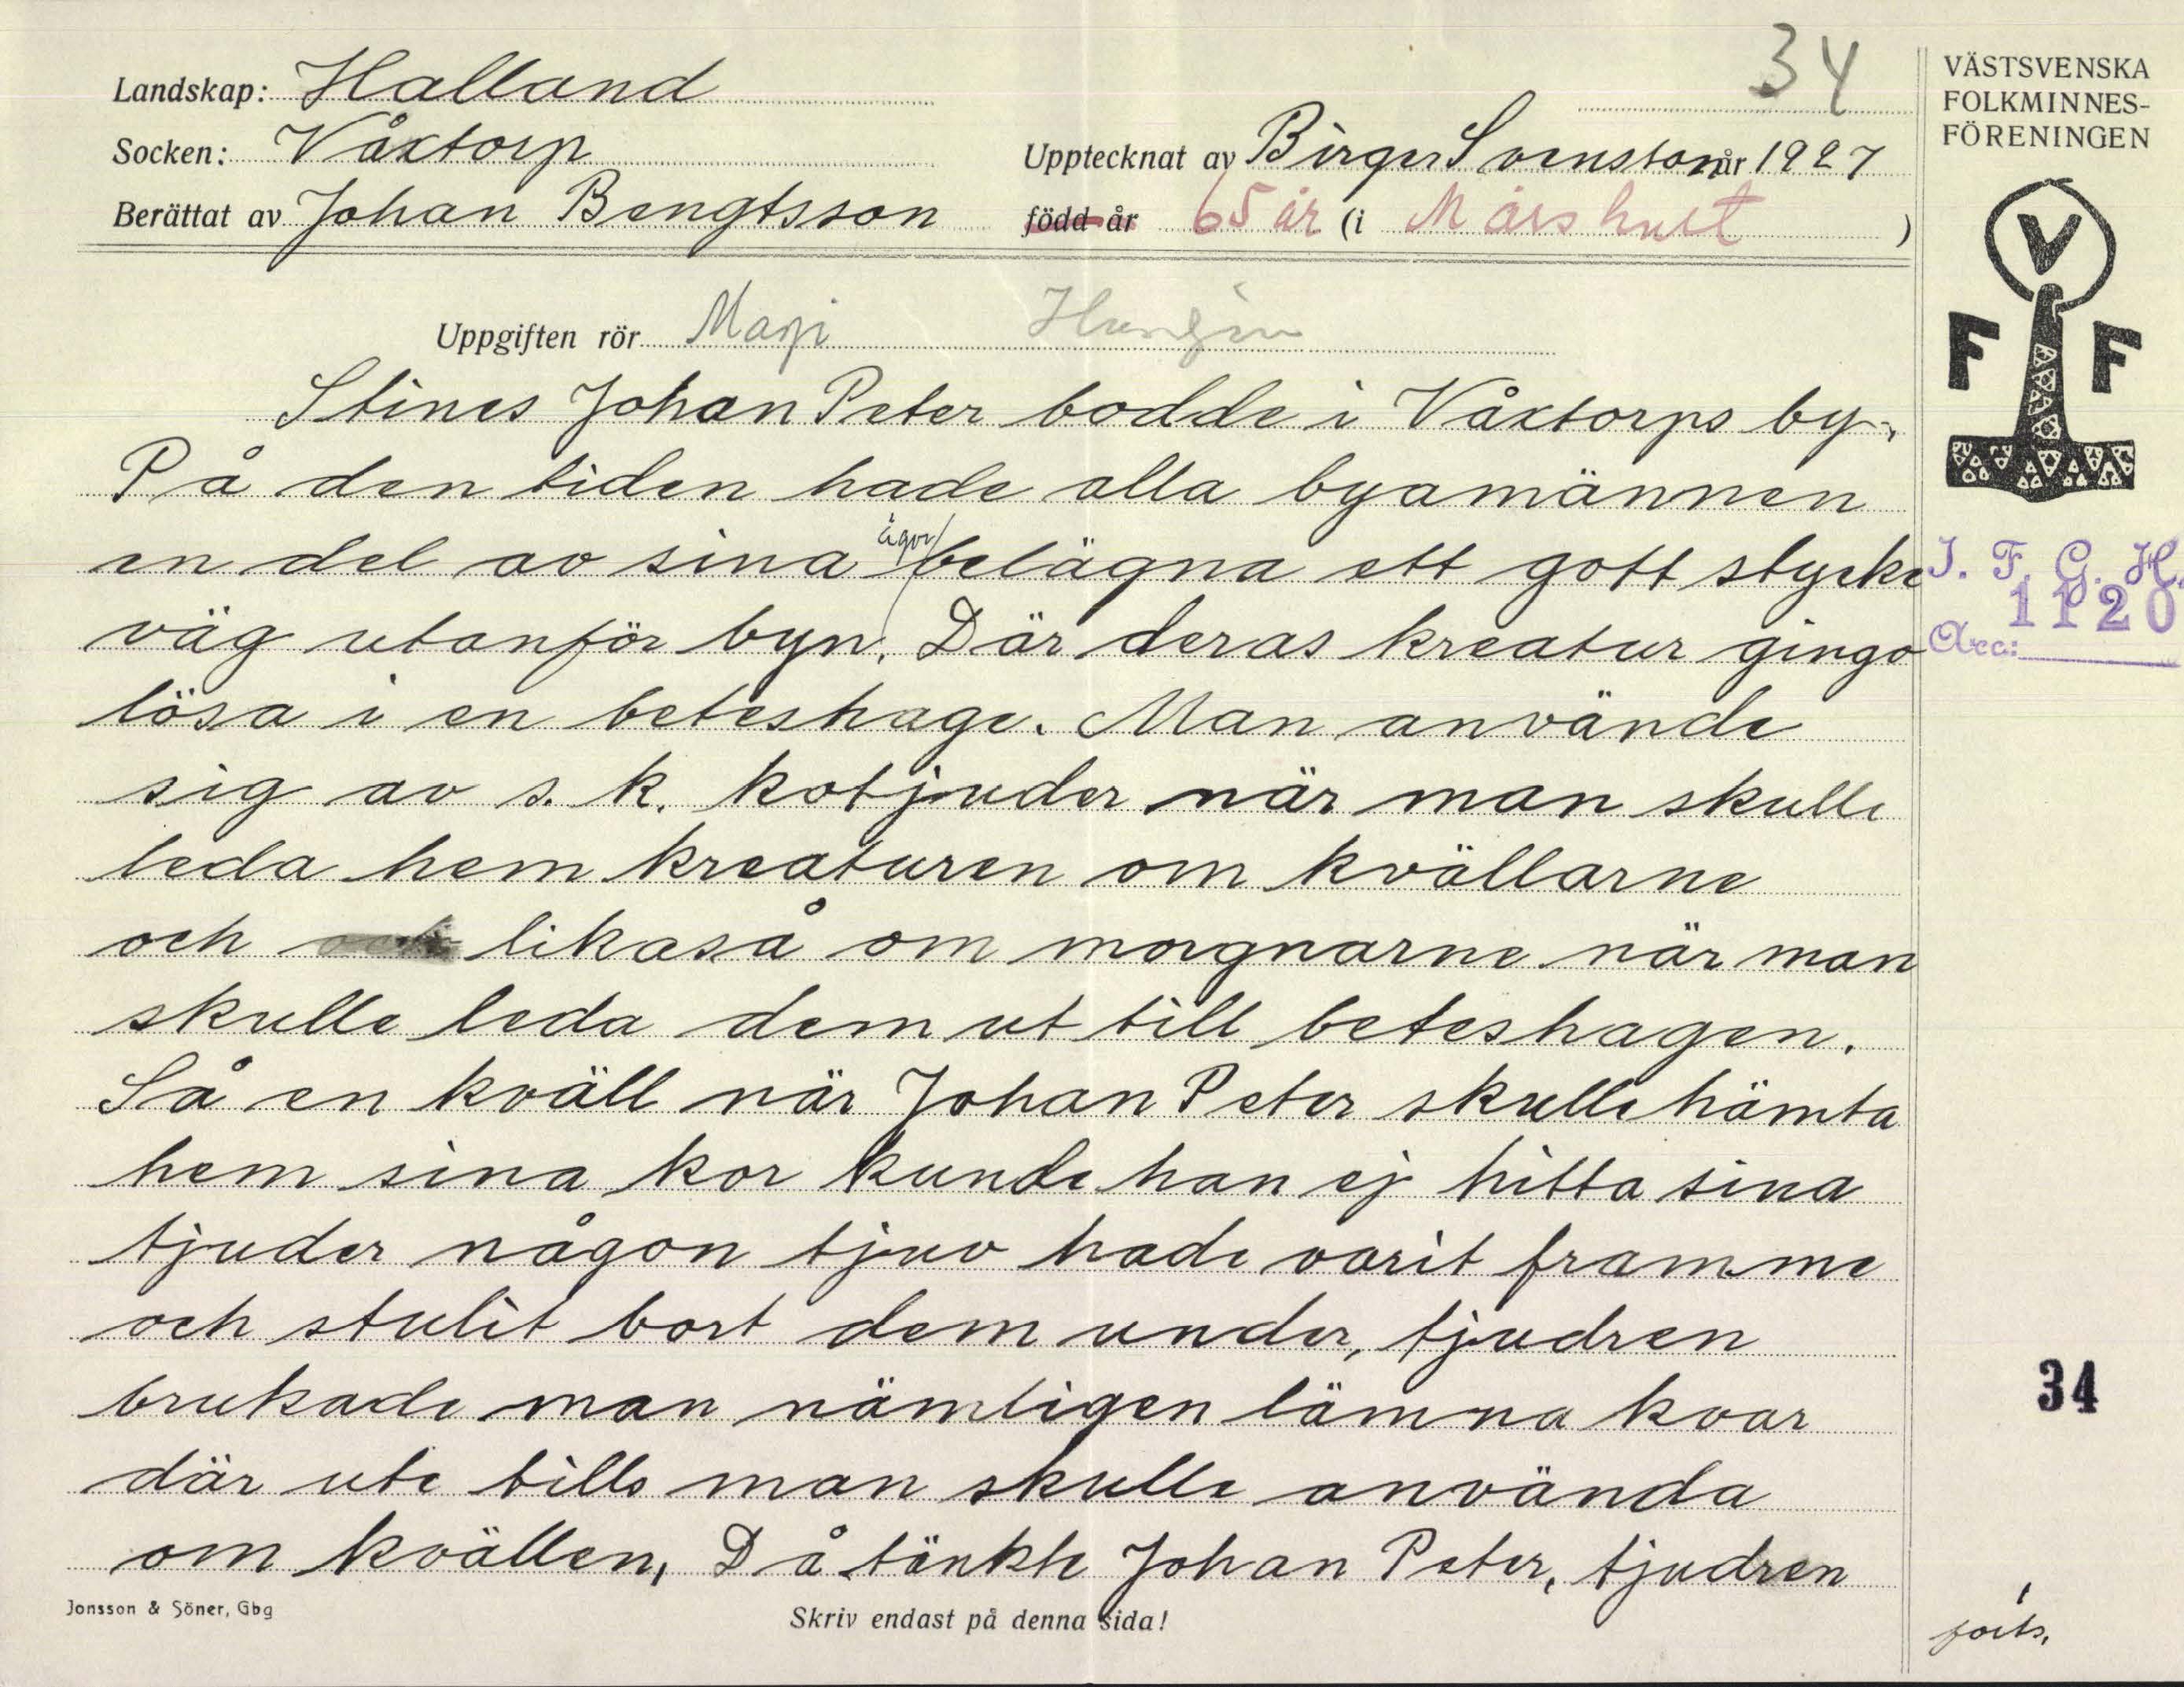 34
Landskap: Halland
Socken: Våxtorp
Upptecknat av Birger Svensson år 1927
Berättat av Johan Bengtsson född år 65 år (i Mårshult )
VÄSTSVENSKA
FOLKMINNES-
FÖRENINGEN
V
F F
Uppgiften rör Magi
Stines Johan Peter bodde i Våxtorps by,
På den tiden hade alla byamännen
en del av sina ägor belägna ett gott stycke
väg utanför byn. Där deras kreatur gingo
lösa i en beteshage. Man använde
sig av s. k. kotjuder när man skulle
leda hem kreaturen om kvällarne
och likaså om morgnarne när man
skulle leda dem ut till beteshagen.
Så en kväll när Johan Peter skulle hämta
hem sina kor kunde han ej hitta sina
tjuder någon tjuv hade varit framme
och stulit bort dem under, tjudren
brukade man nämligen lämna kvar
där ute tills man skulle använda
om kvällen, Då tänkte Johan Peter, tjudren
I. F. G. H.
1120
Acc:
34
forts.
Jonsson & Söner, Gbg
Skriv endast på denna sida!